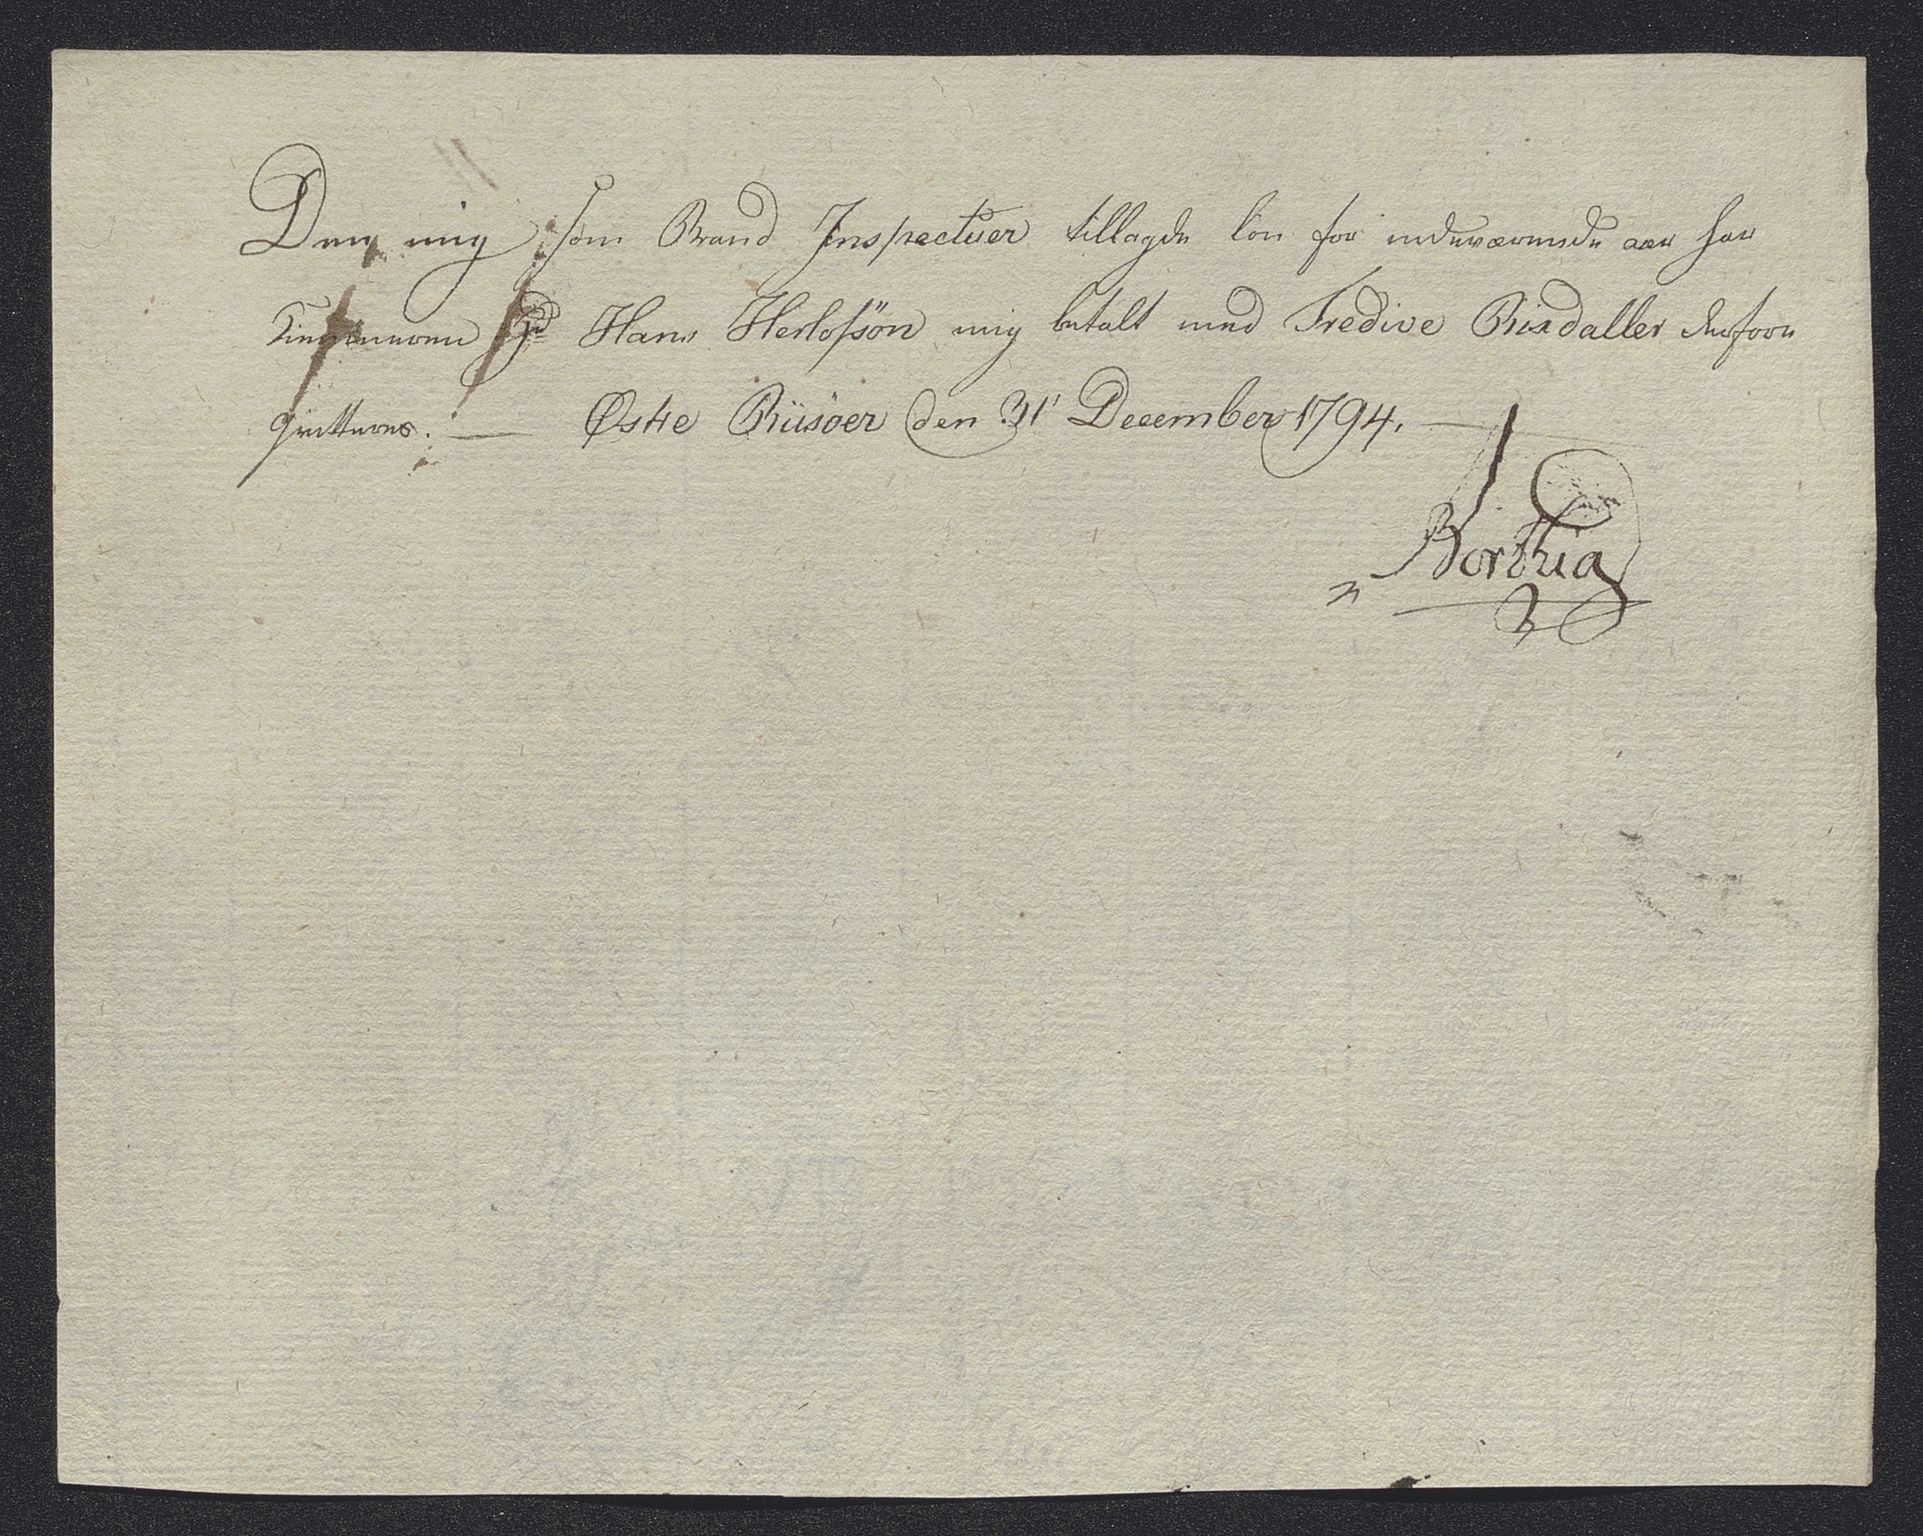 Den mig som Brand Inspectuer tillagde lön for indeværende aar har
Kiemneren Sr Hans Herlofsön mig betalt med Tredive Rixdaller derfore
qvitteres. — Østre Riisöer den 31' December 1794.
Borthig